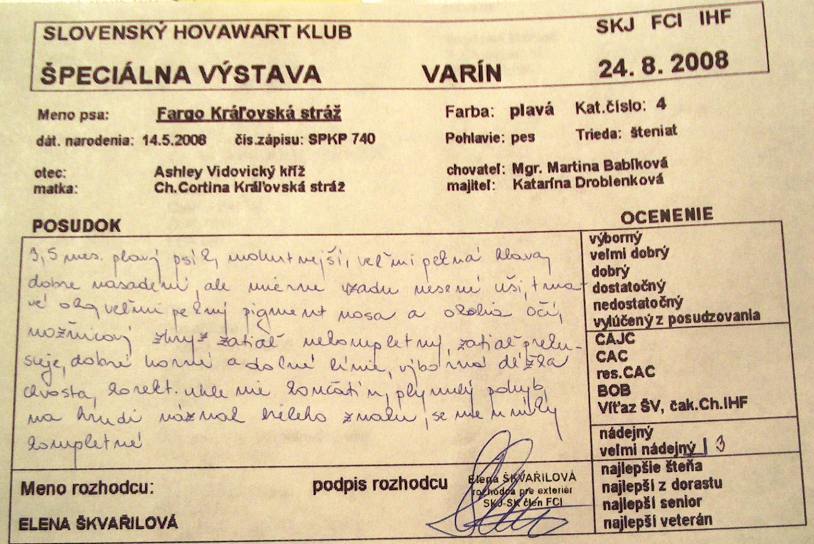 SLOVENSKÝ HOVAWART KLUB
SKJ FCI IHF
ŠPECIÁLNA VÝSTAVA VARÍN 24. 8. 2008
Meno psa: Fargo Kráľovská stráž Farba: plavá Kat.číslo: 4
dát. narodenia: 14.5.2008 čís.zápisu: SPKP 740 Pohlavie: pes Trieda: šteniat
otec: Ashley Vidovický kříž chovateľ: Mgr. Martina Babíková
matka: Ch.Cortina Kráľovská stráž majiteľ: Katarína Droblenková
POSUDOK
3,5 mes. plavý psík, mohutnejší, veľmi pekná hlava,
dobre nasadené, ale mierne vzadu nesené uši, tma-
vé oko, veľmi pekný pigment nosa a okolia očí,
nožnicový zhryz zatiaľ nekompletný, zatiaľ
dobré horné a dolné línie, výborná dĺžka
chvosta, korekt. uhlenie končatín, plynulý pohyb,
na hrudi náznak bieleho znaku,
kompletné
OCENENIE
výborný
velmi dobrý
dobrý
dostatočný
nedostatočný
vylúčený z posudzovania
CAJC
CAC
res.CAC
BOB
Víťaz ŠV, čak.Ch.IHF
nádejný
velmi nádejný 3
najlepšie šteňa
najlepší z dorastu
najlepší senior
najlepší veterán
Meno rozhodcu: podpis rozhodcu
ELENA ŠKVAŘILOVÁ
Elena ŠKVAŘILOVÁ
rozhodca pre exteriér
SKJ-SK člen FCI